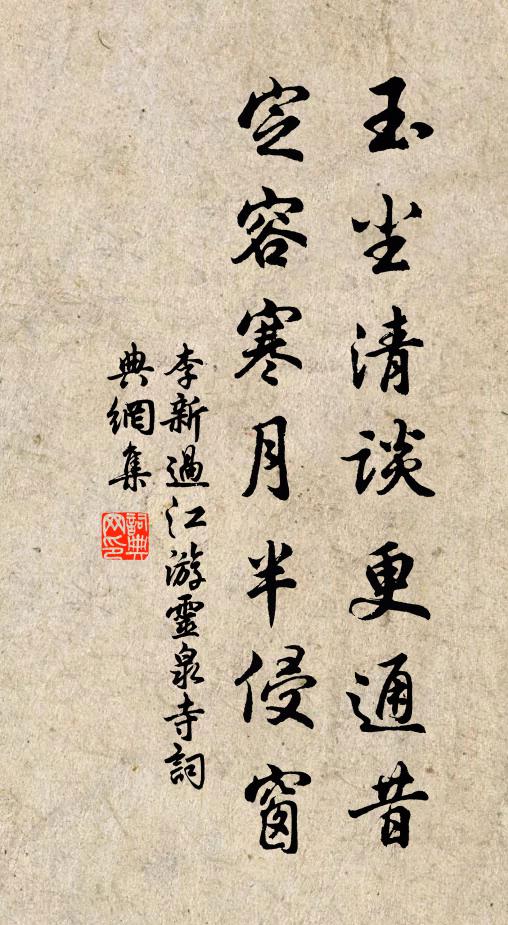 玉尘清談更通昔
定容寒月半侵窗
李新過江游靈泉寺詞
典網集
詞典网印